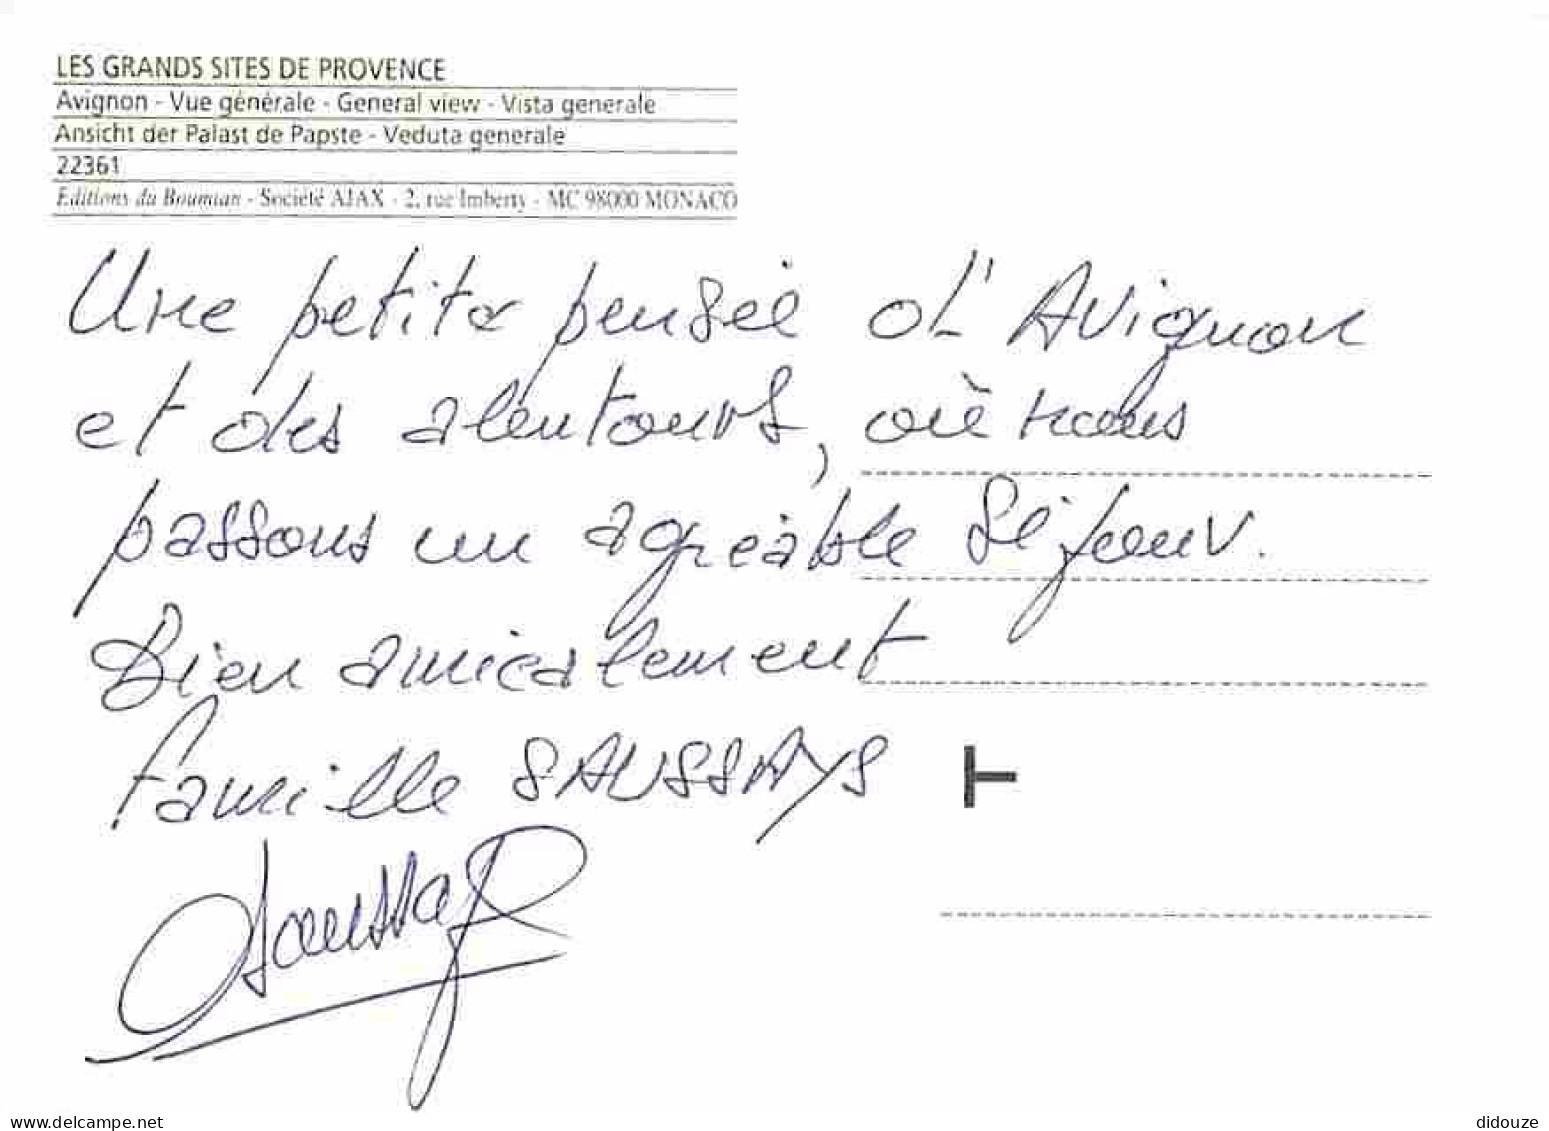 LES GRANDS SITES DE PROVENCE
Avignon - Vue générale - General view - Vista generale
Ansicht der Palast de Papste - Veduta generale
22361
Editions du Boumian - Société AJAX - 2, rue Imberty - MC 98000 MONACO
Une petite pensée d'Avignon
et des alentours, où nous
passons un agréable séjour.
Bien amicalement
famille SAUSSAYS
Saussay
delcampe.net
didouze